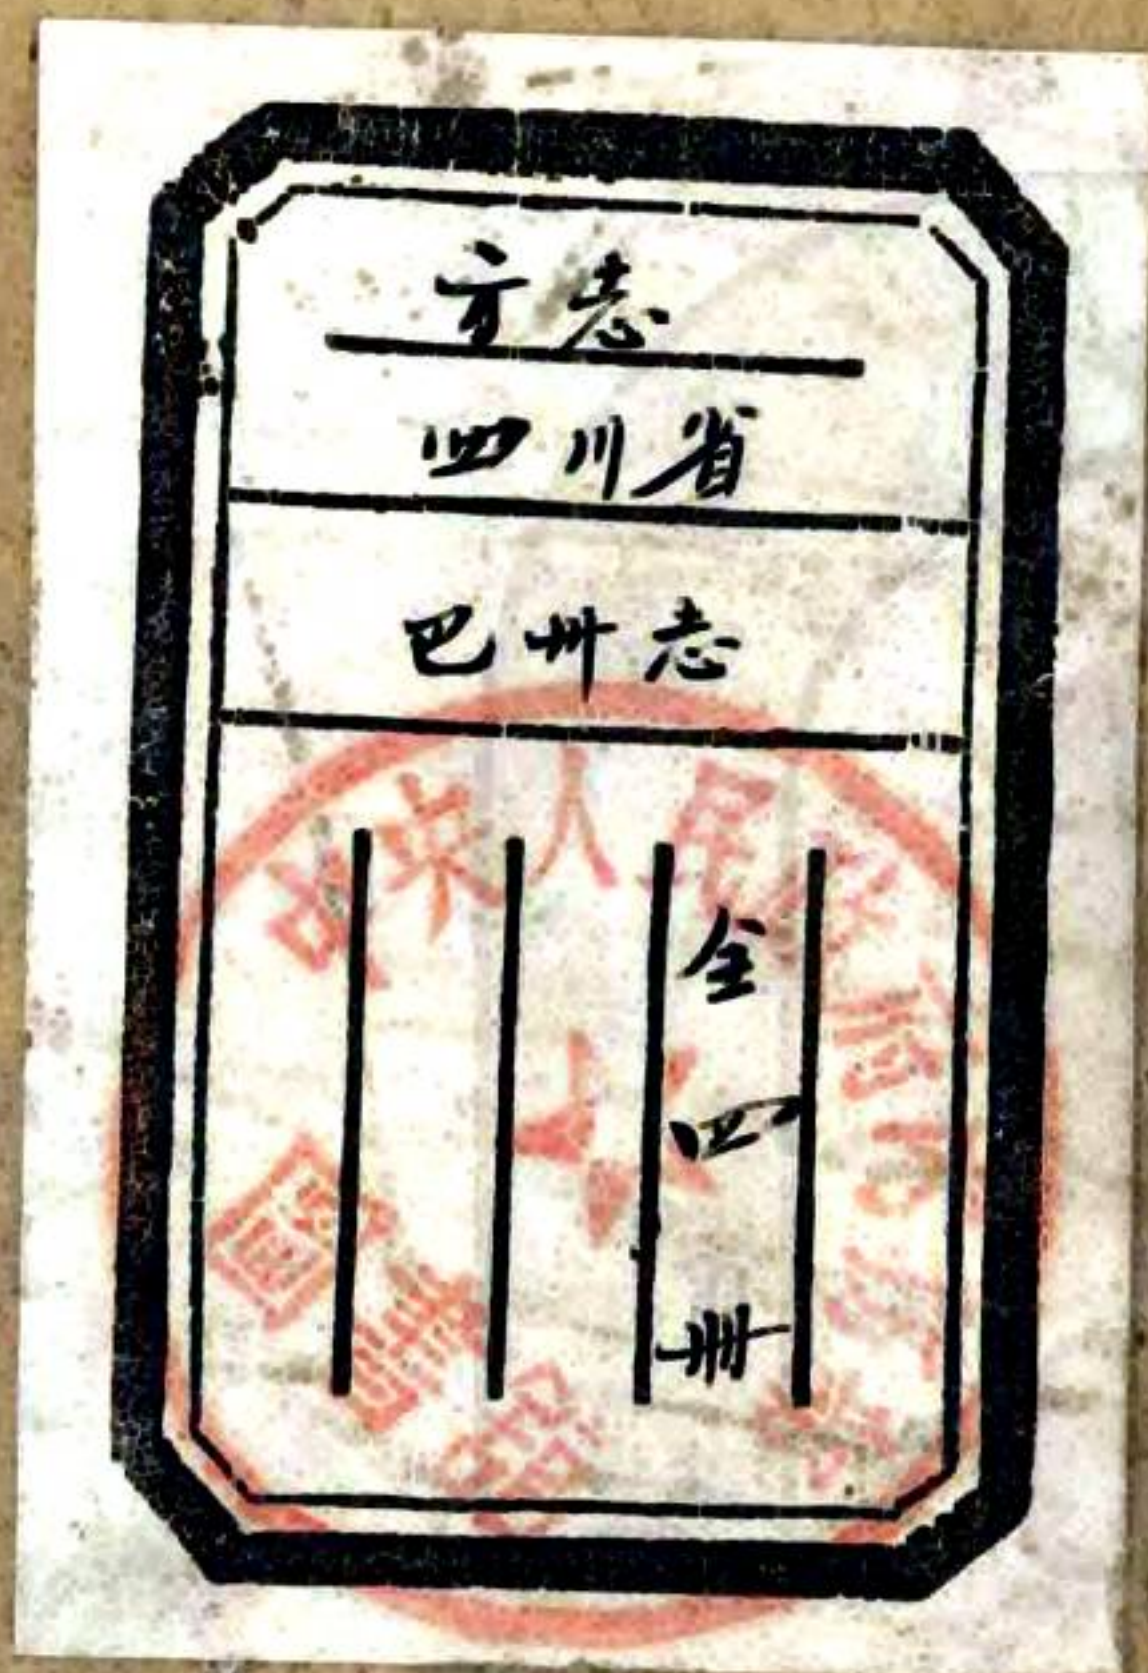 方志
四川省
巴州志
全四册
中央人民政府
圖書